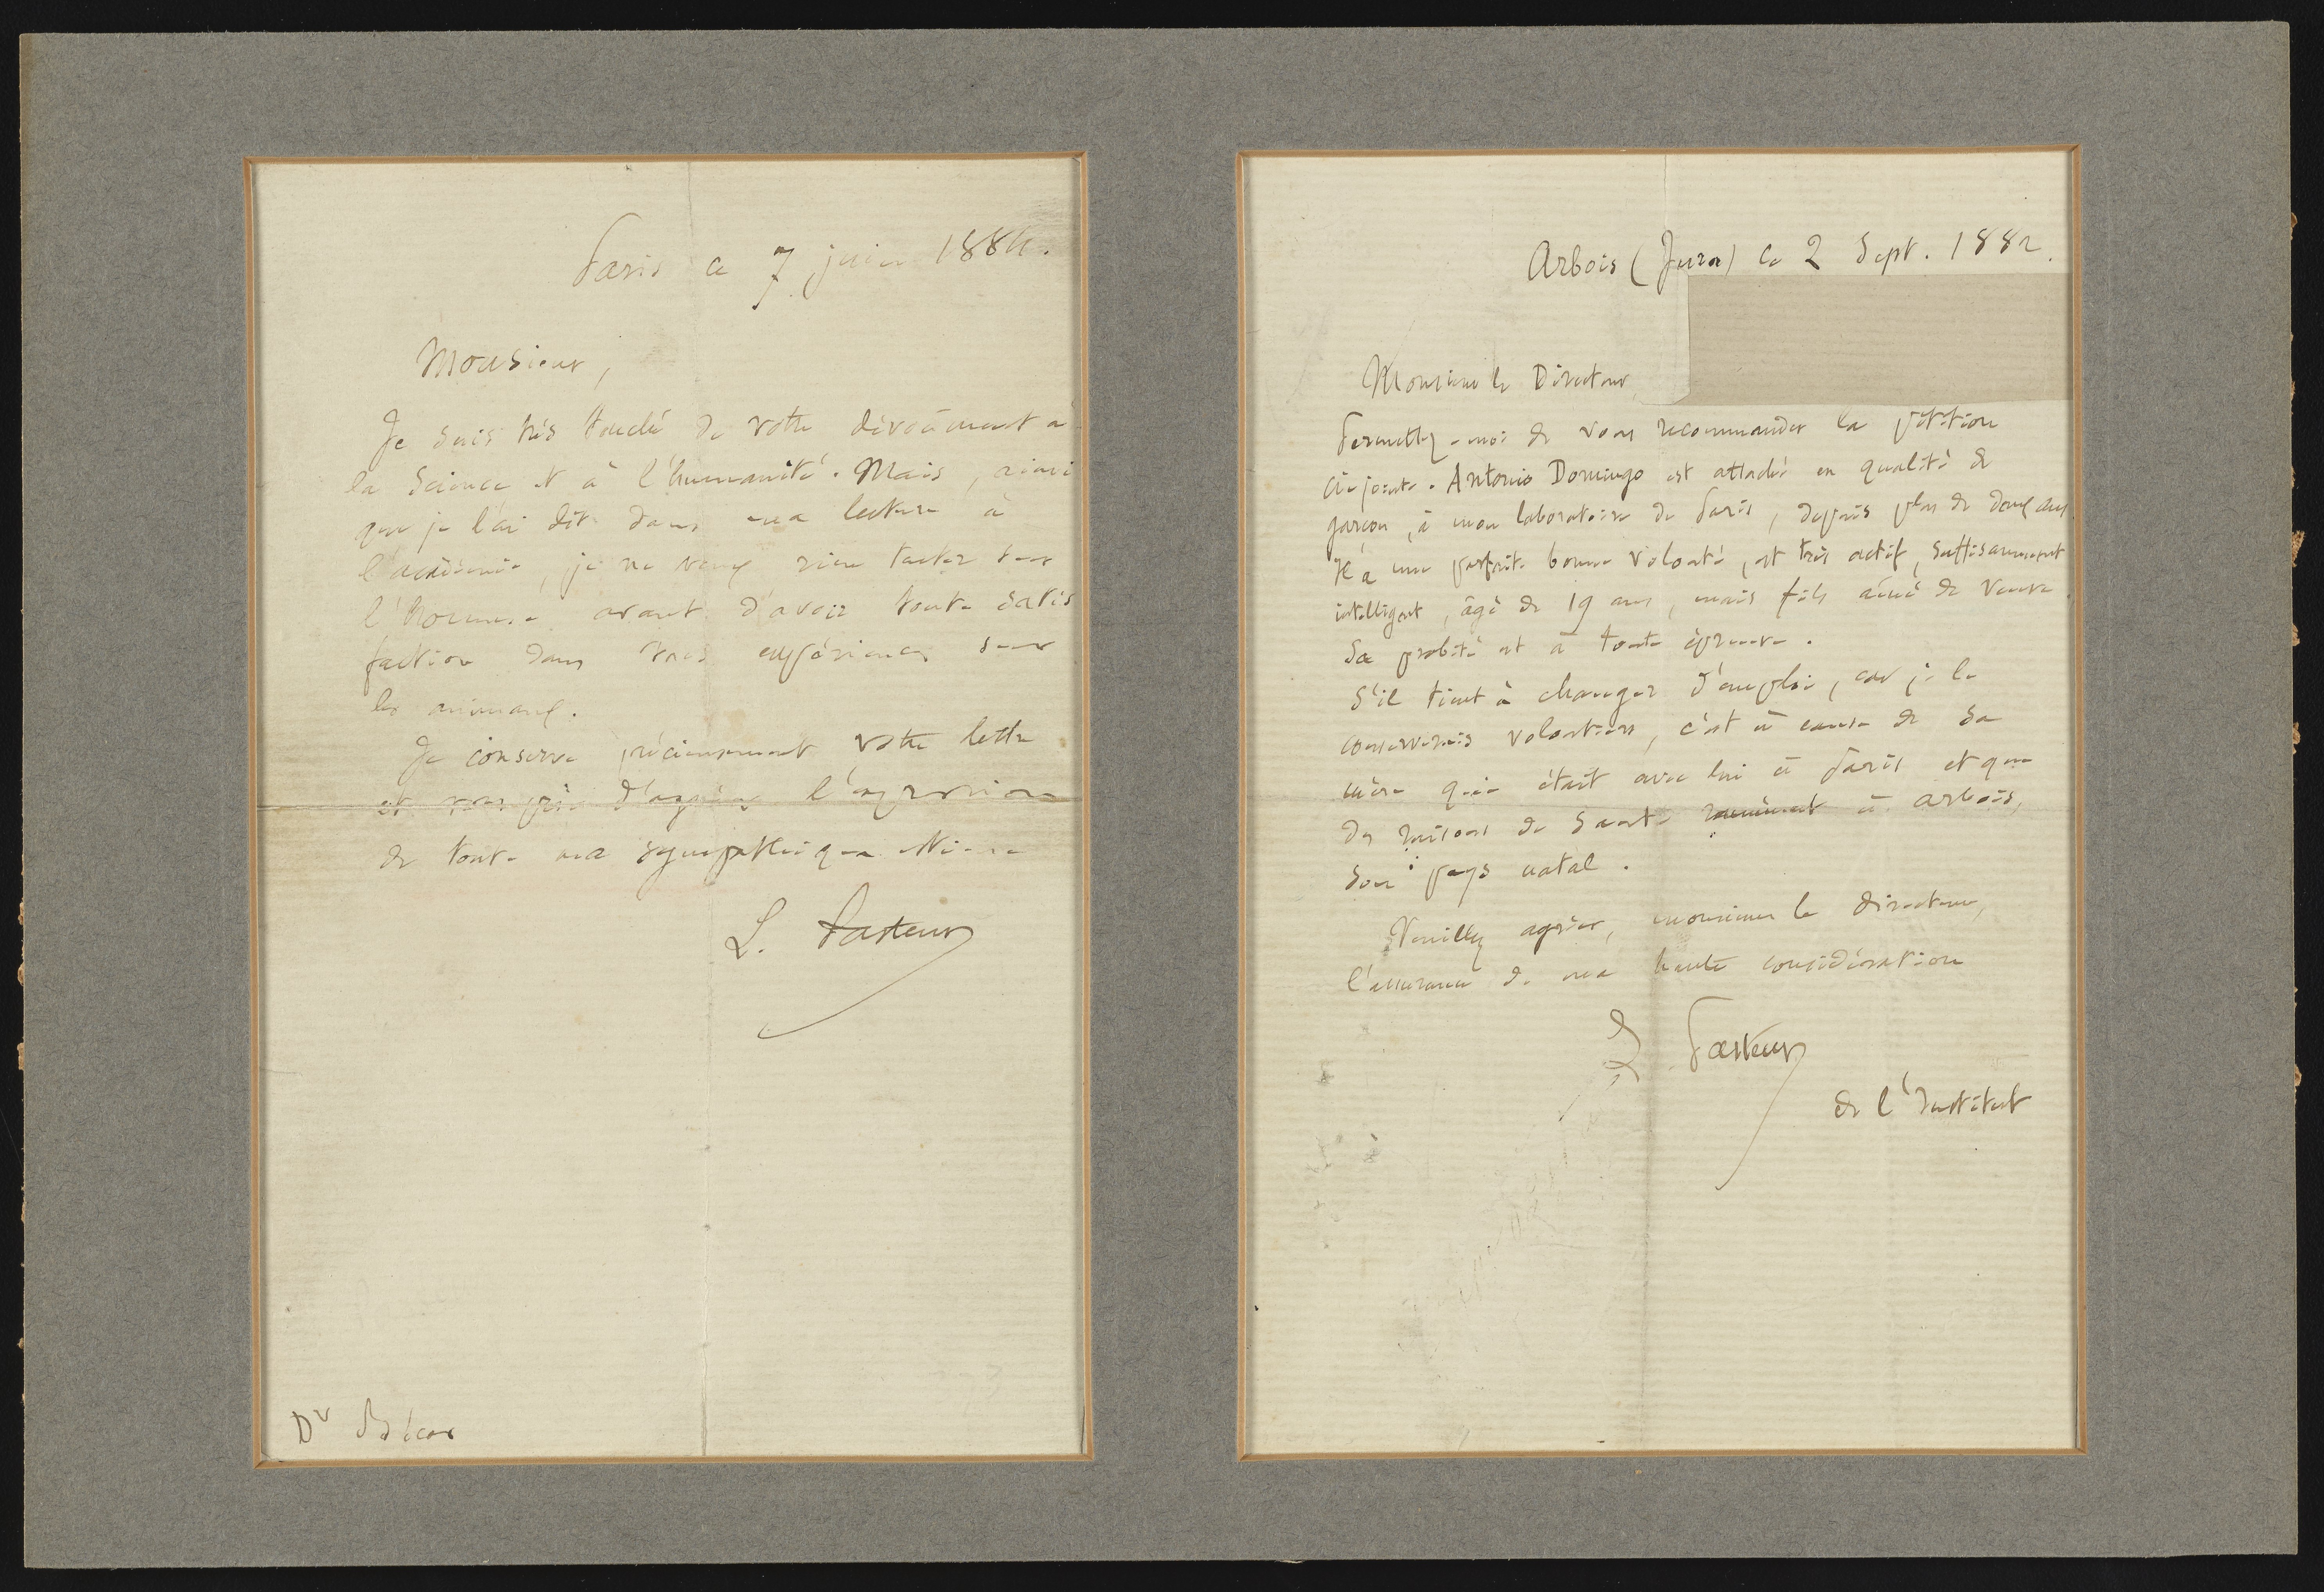 Paris ce 7 juin 1884.
Monsieur,
Je suis très touché de votre dévoûment à
la Science et à l'humanité. Mais, ainsi
que je l'ai dit dans ma lecture à
l'académie, je ne veux rien tenter sur
l'homme avant d'avoir toute satis
faction dans mes expériences sur
les animaux.
Je conserve précieusement votre lettre
et vous prie d'agréer l'expression
de toute ma sympathique estime
L. Pasteur
Dr
Arbois (Jura) ce 2 Sept. 1882.
Monsieur le Directeur,
Permettez-moi de vous recommander la pétition
ci-jointe. Antonio Domingo est attaché en qualité de
garçon, à mon laboratoire de Paris, depuis plus de deux ans
Il a une parfaite bonne volonté, est très actif, suffisamment
intelligent, âgé de 19 ans, mais fils aîné de veuve.
Sa probité est à toute épreuve.
S'il tient à changer d'emploi, car je le
conserverais volontiers, c'est à cause de sa
mère qui était avec lui à Paris et que
des raisons de santé ramènent à arbois,
son pays natal.
Veuillez agréer, monsieur le directeur,
l'assurance de ma haute considération
L Pasteur
de l'Institut